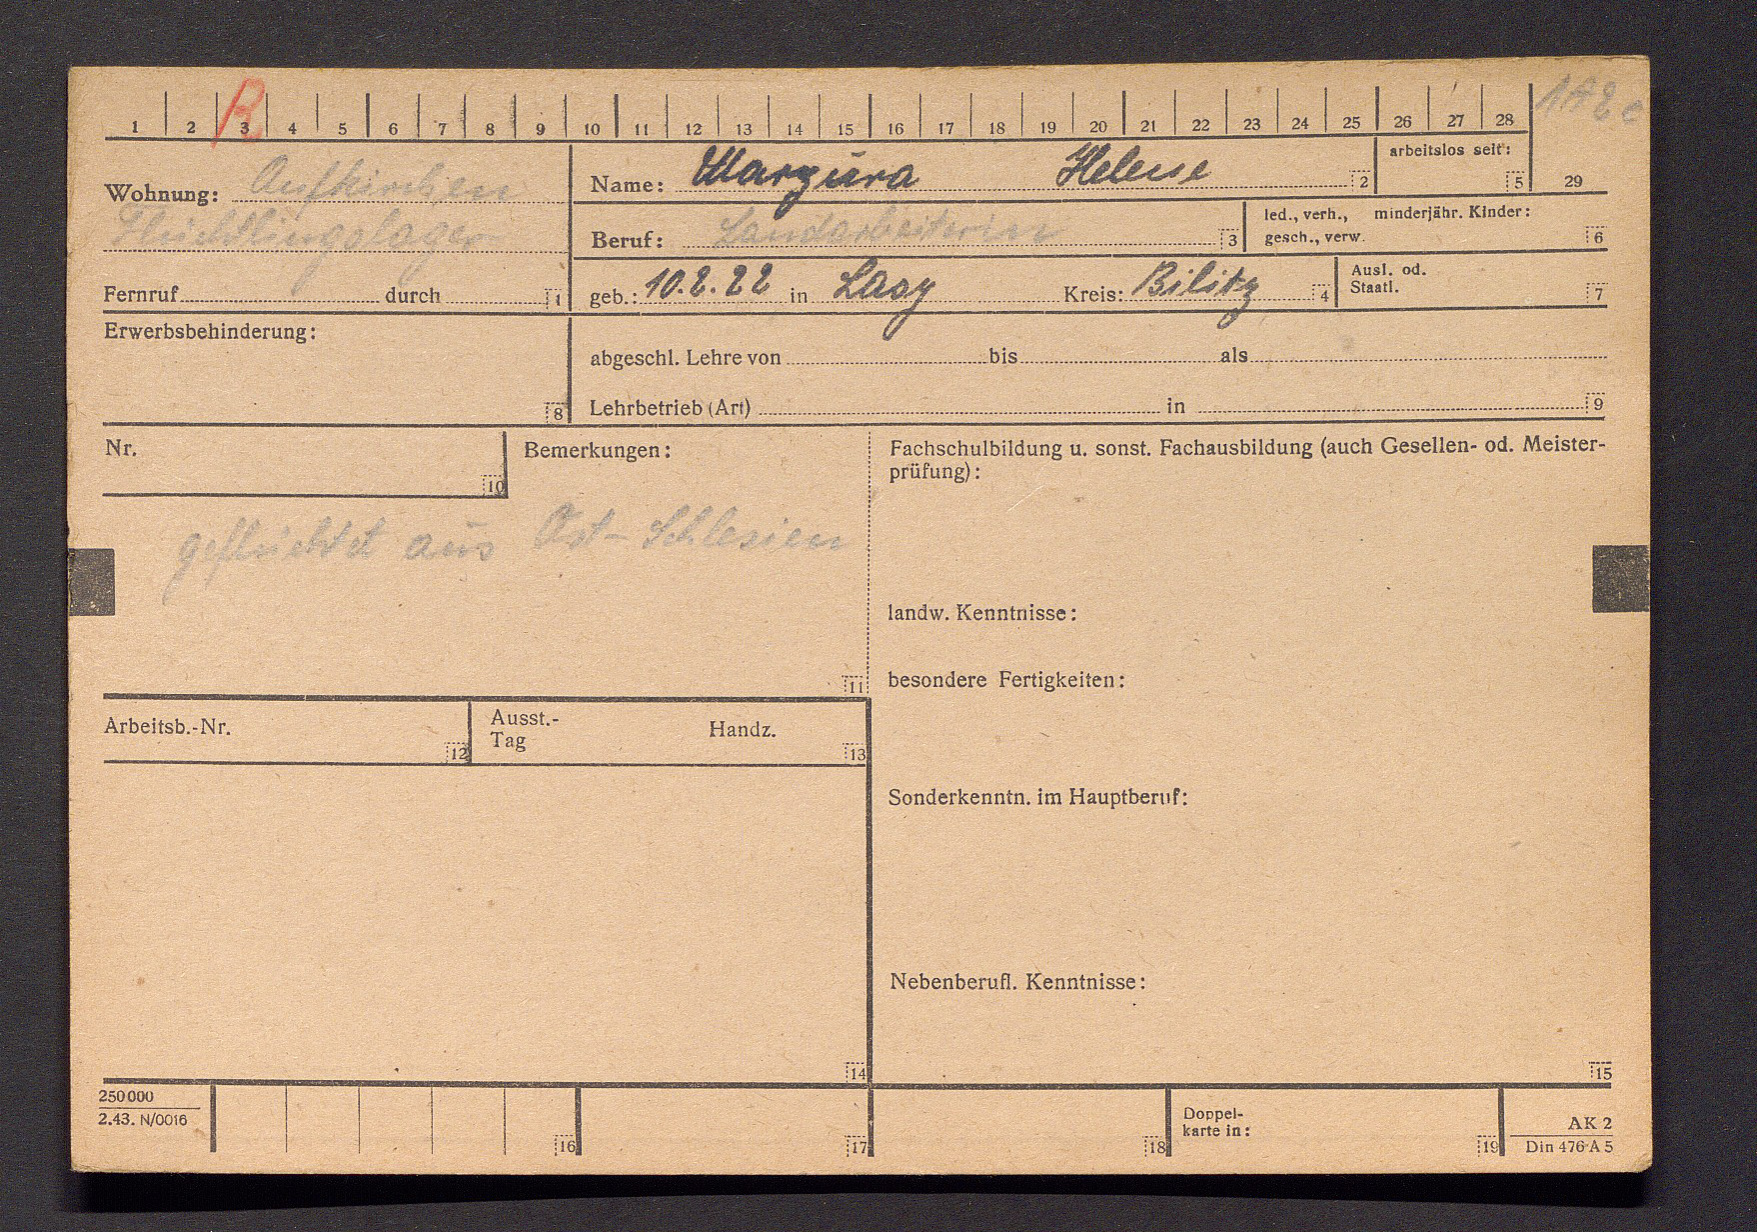 1 2 3 4 5 6 7 8 9 10 11 12 13 14 15 16 17 18 19 20 21 22 23 24 25 26 27 28
R
Wohnung: Aufkirchen
Flüchtlingslager
Fernruf durch 1
Name: Warzura Helene 2
arbeitslos seit: 5
29
Beruf: Landarbeiterin 3
led., verh., minderjähr. Kinder:
gesch., verw. 6
geb.: 10.2.22 in Lasy Kreis: Bilitz 4
Ausl. od.
Staatl. 7
Erwerbsbehinderung:
8
abgeschl. Lehre von bis als
Lehrbetrieb (Art) in 9
Nr.
10
Bemerkungen:
geflüchtet aus Ost-Schlesien
11
Fachschulbildung u. sonst. Fachausbildung (auch Gesellen- od. Meister-
prüfung):
landw. Kenntnisse:
besondere Fertigkeiten:
Arbeitsb.-Nr.
12
Ausst.-
Tag Handz.
13
Sonderkenntn. im Hauptberuf:
Nebenberufl. Kenntnisse:
14
15
250000
2.43. N/0016
16
17
18
Doppel-
karte in:
19
AK 2
Din 476 A 5